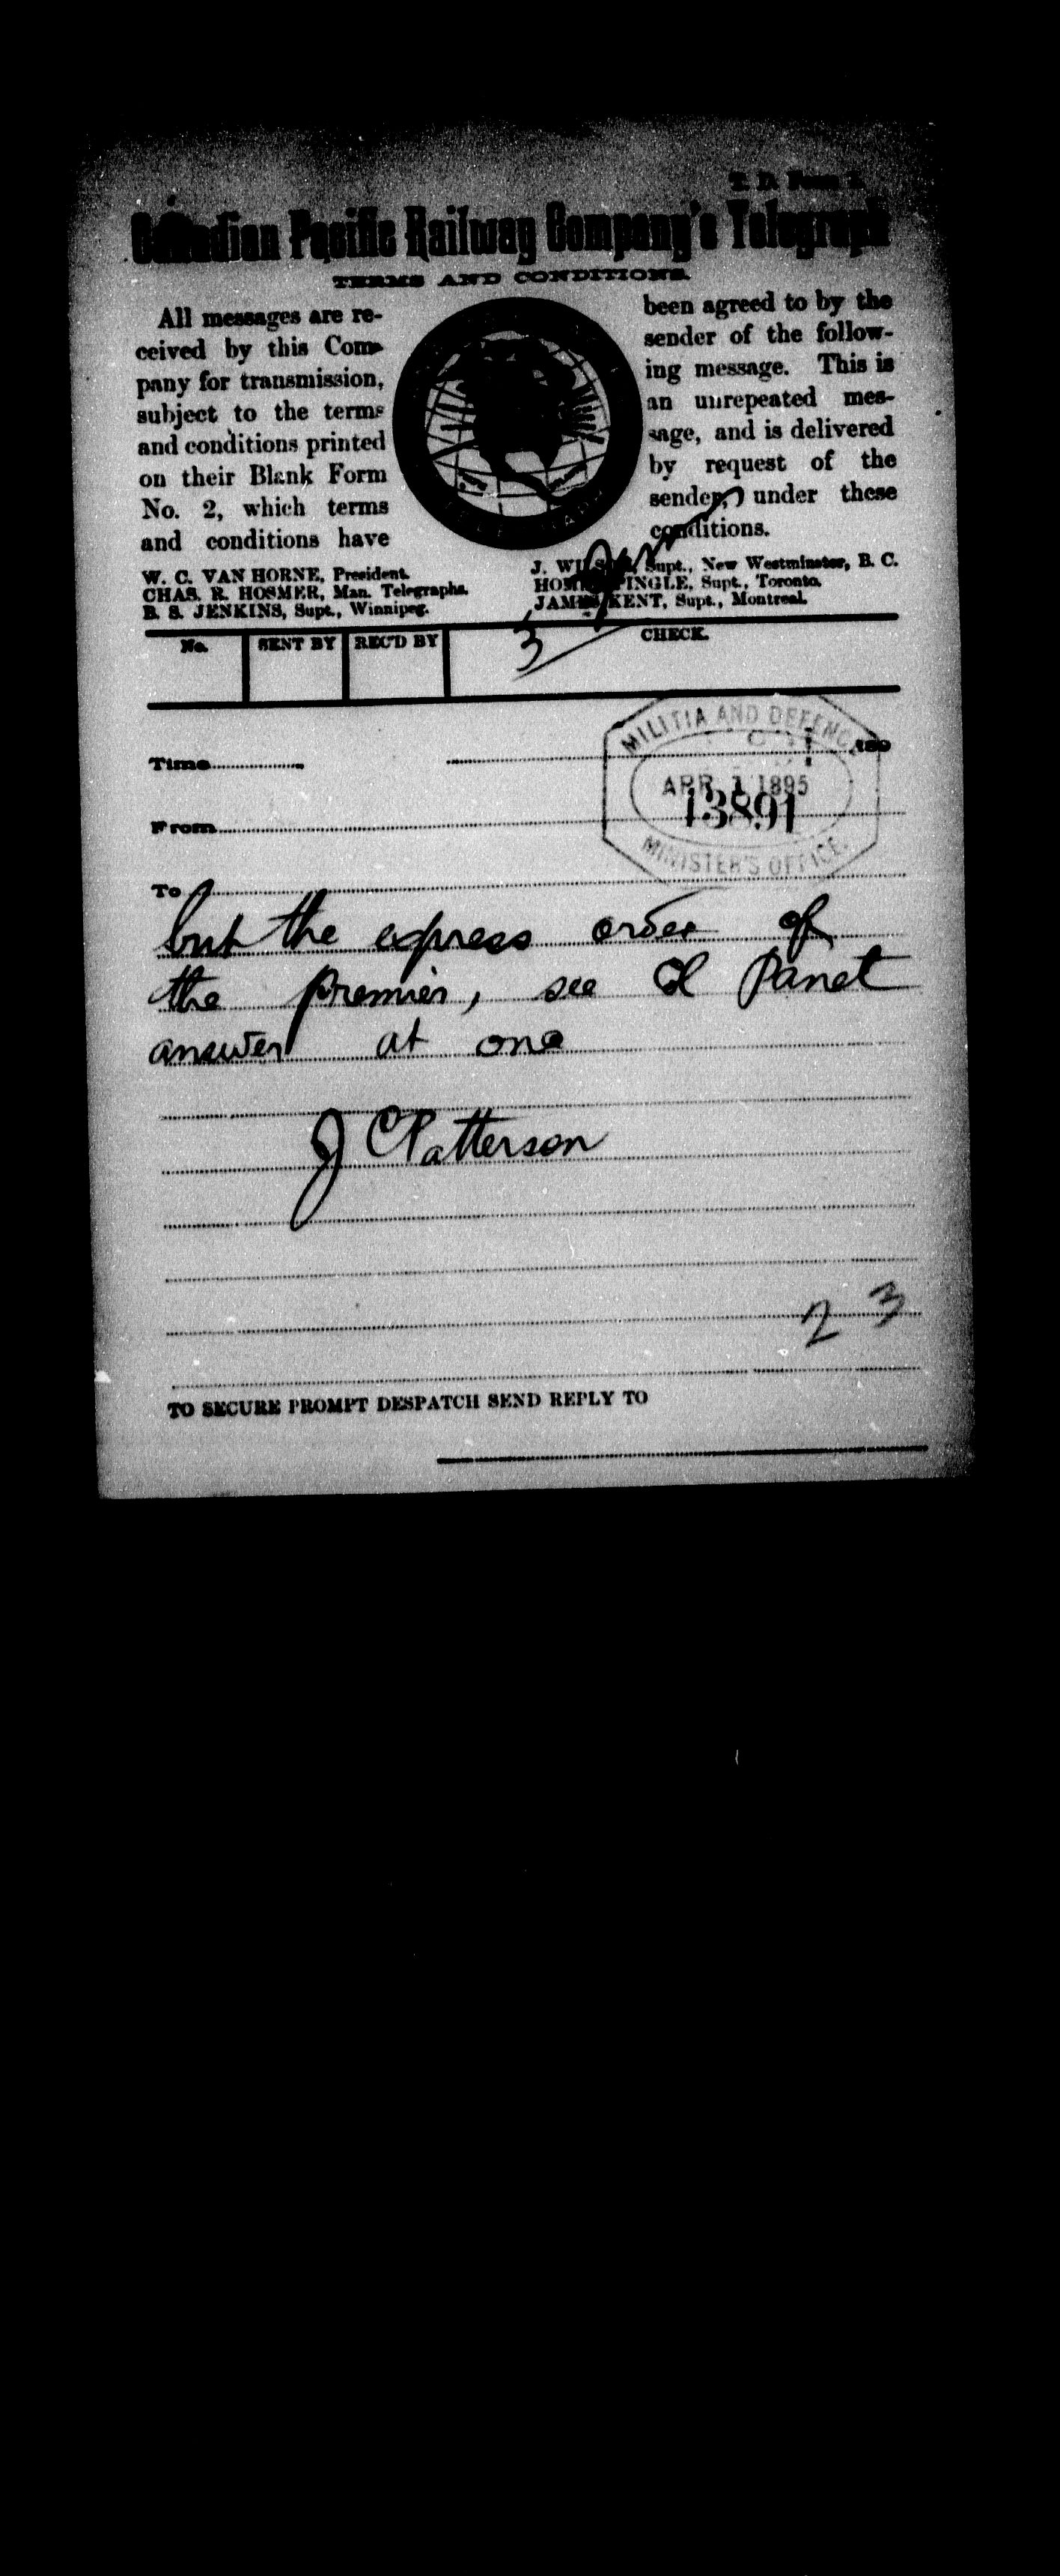 T. D. Form 1.
Canadian Pacific Railway Company's Telegraph
TERMS AND CONDITIONS.
All messages are re-
ceived by this Com-
pany for transmission,
subject to the terms
and conditions printed
on their Blank Form
No. 2, which terms
and conditions have
been agreed to by the
sender of the follow-
ing message. This is
an unrepeated mes-
sage, and is delivered
by request of the
sender, under these
conditions.
W. C. VAN HORNE, President.
CHAS. R. HOSMER, Man. Telegraphs.
B. S. JENKINS, Supt., Winnipeg.
J. WILSON, Supt., New Westminster, B. C.
HOMER PINGLE, Supt., Toronto.
JAMES KENT, Supt., Montreal.
3
No. SENT BY REC'D BY CHECK.
MILITIA AND DEFENCE
Time 189
APR 1 1895
13891
From
MINISTER'S OFFICE.
To
but the express order of
the premier, see Cl Panet
answer at one
J C Patterson
2 3
TO SECURE PROMPT DESPATCH SEND REPLY TO